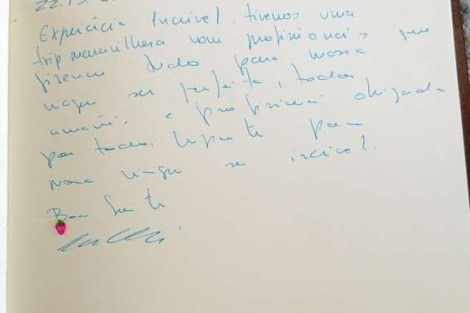 22.
Experiência Incrível, tivemos uma
trip maravilhosa com profissionais que
fizeram tudo para nossa
viagem ser perfeita, todos
e obrigada
por todo para
nossa viagem ser incrível.
Boa Sorte